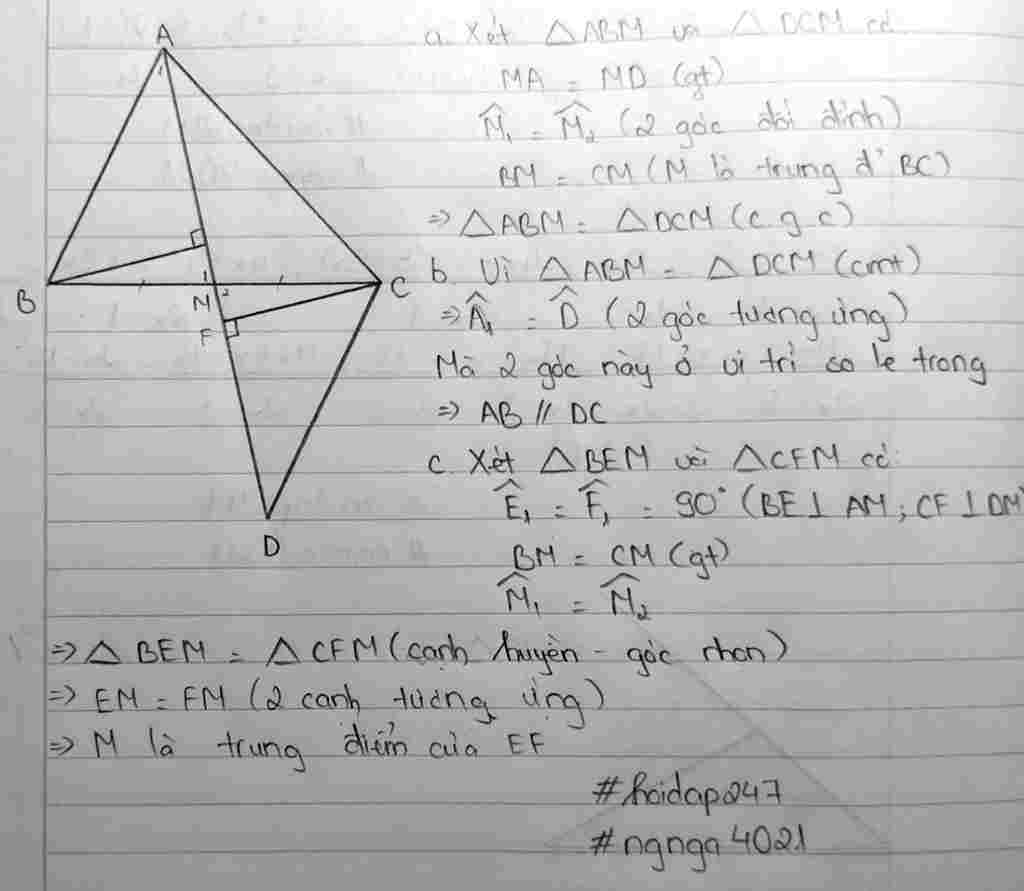 A
B
M
1
2
C
F
D
a. Xét △ABM và △DCM có:
MA = MD (gt)
M̂₁ = M̂₂ (2 góc đối đỉnh)
BM = CM (M là trung đ' BC)
=> △ABM = △DCM (c.g.c)
b. Vì △ABM = △DCM (cmt)
=> Â₁ = D̂ (2 góc tương ứng)
Mà 2 góc này ở vị trí so le trong
=> AB // DC
c. Xét △BEM và △CFM có:
Ê₁ = F̂₁ = 90° (BE ⊥ AM ; CF ⊥ DM)
BM = CM (gt)
M̂₁ = M̂₂
=> △BEM = △CFM (cạnh huyền - góc nhọn)
=> EM = FM (2 cạnh tương ứng)
=> M là trung điểm của EF
#hoidap247
#ngnga4021